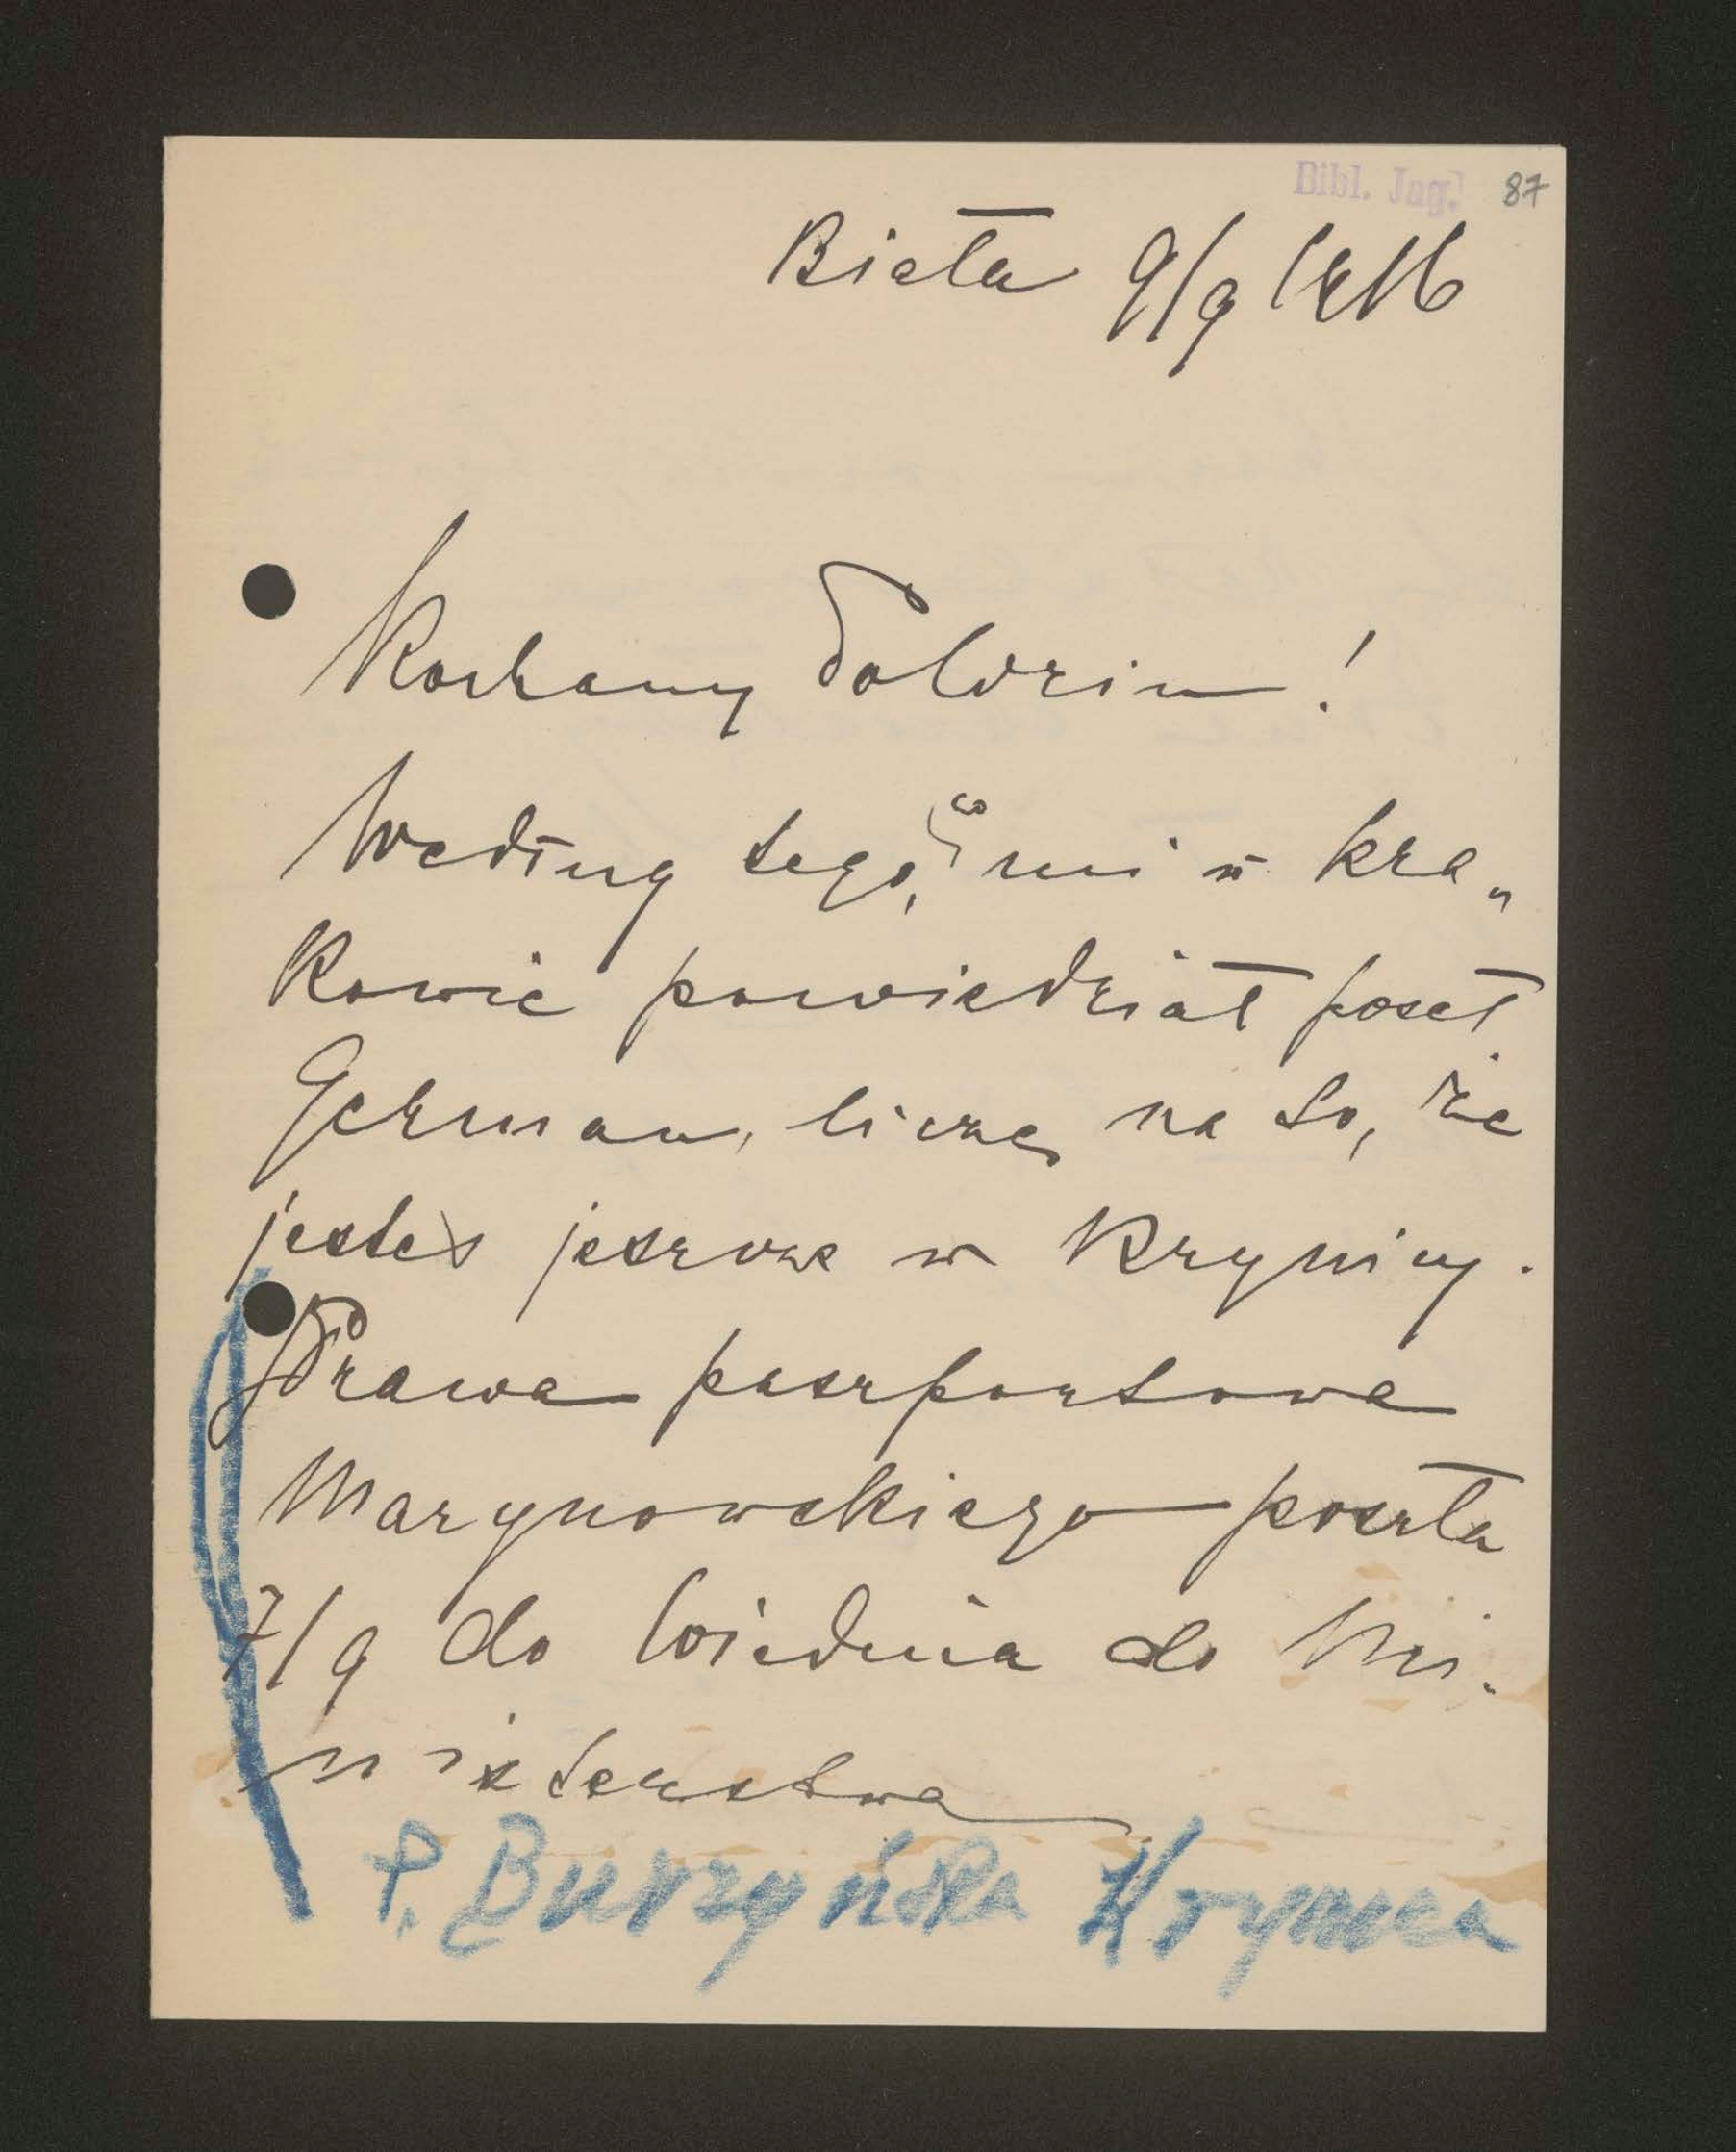 Bibl. Jag. 87
Biała 9/9 1916
Kochany Foldziu!
Według tego, co mi w Kra„
kowie powiedział poseł
German, liczę na to, że
jesteś jeszcze w Krynicy.
Sprawa paszportowa
Marynowskiego poszła
7/9 do Wiednia do Mi-
nisterstwa
P. Burzyńska Krynica